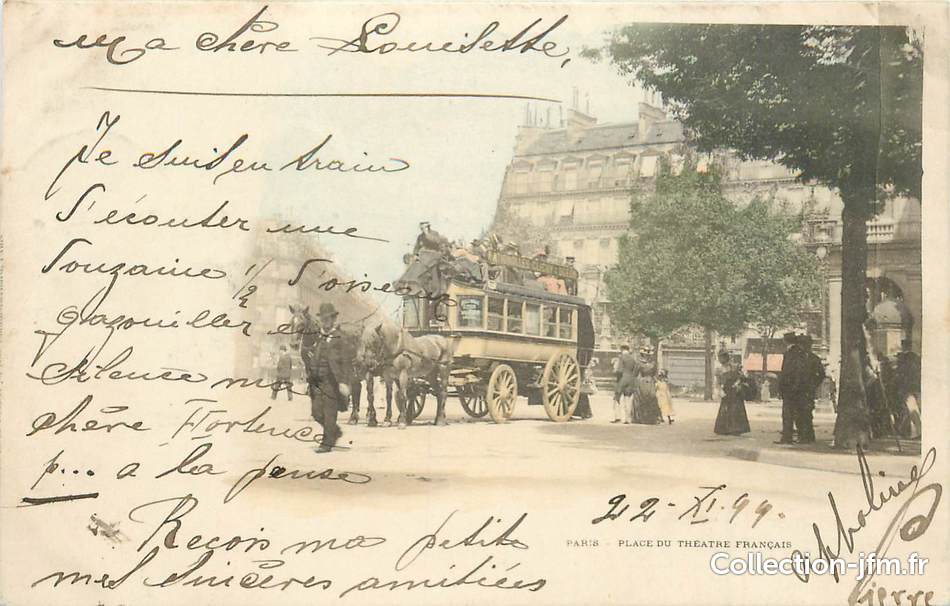 Ma chère Louisette,
Je suis en train
d'écouter une
douzaine 1/2 d'oiseaux
gazouiller en
silence ma
chère Hortense
p... à la panse
Reçois ma petite
mes sincères amitiées
22-XI-99-
PARIS - PLACE DU THÉATRE FRANÇAIS
Appoline
Pierre
Collection-jfm.fr